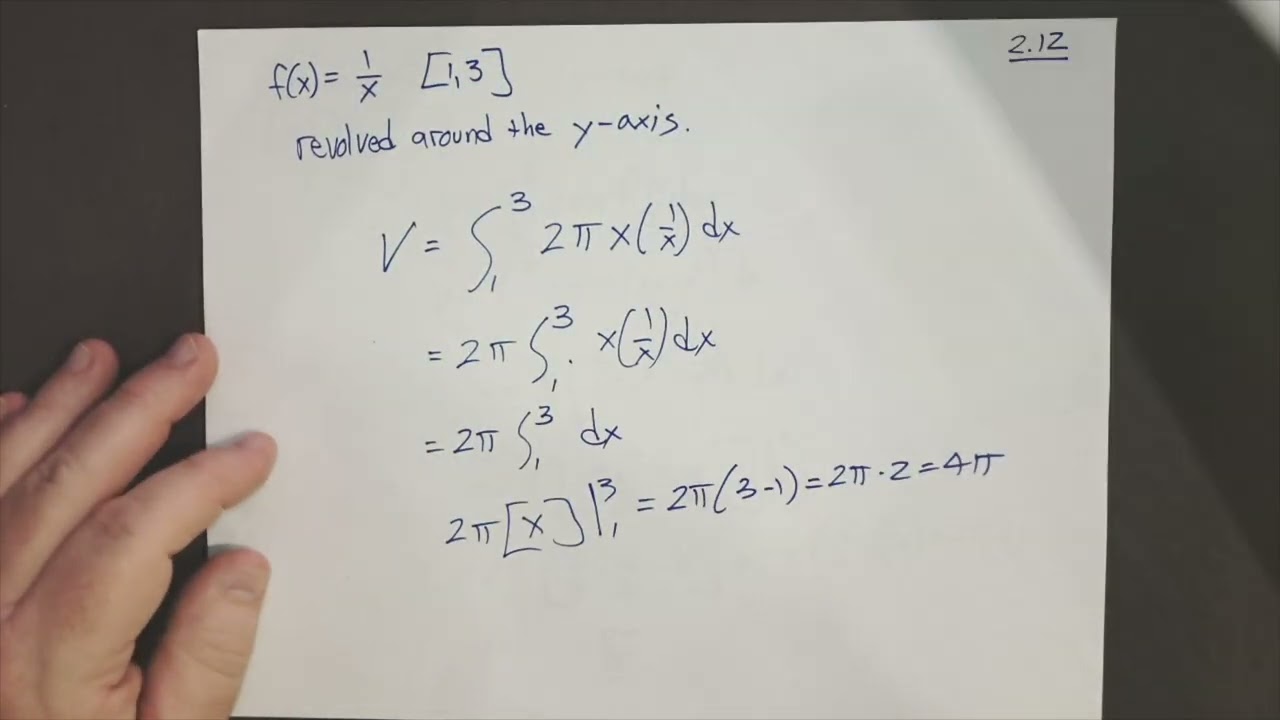 2.12
f(x) = 1/x [1,3]
revolved around the y-axis.
V = ∫₁³ 2π x(1/x) dx
= 2π ∫₁³ · x(1/x) dx
= 2π ∫₁³ dx
2π[x]|₁³ = 2π(3-1) = 2π · 2 = 4π